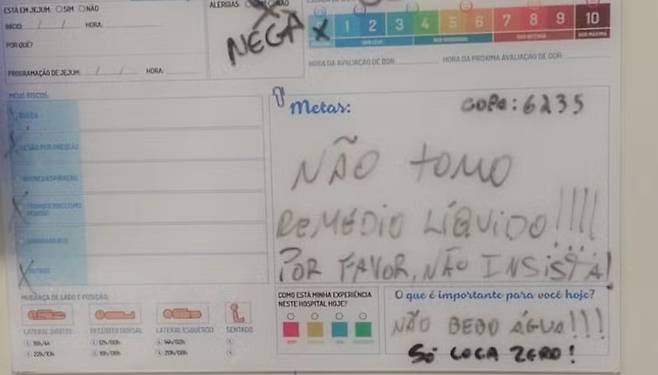 ESTÁ EM JEJUM: SIM NÃO
ALERGIAS: SIM NÃO
INÍCIO: / / HORA:
POR QUÊ?
NEGA
1 2 3 4 5 6 7 8 9 10
HORA DA AVALIAÇÃO DE DOR: HORA DA PRÓXIMA AVALIAÇÃO DE DOR:
PROGRAMAÇÃO DE JEJUM: / / HORA:
MEUS RISCOS:
QUEDA
LESÃO POR PRESSÃO
BRONCOASPIRAÇÃO
SANGRAMENTO
OUTROS
Metas:
COPA: 6235
NÃO TOMO
REMÉDIO LÍQUIDO!!!!
POR FAVOR, NÃO INSISTA!
MUDANÇA DE LADO E POSIÇÃO:
LATERAL DIREITO DECÚBITO DORSAL LATERAL ESQUERDO SENTADO
COMO ESTÁ MINHA EXPERIÊNCIA
NESTE HOSPITAL HOJE?
O que é importante para você hoje?
NÃO BEBO ÁGUA!!!
SÓ COCA ZERO!